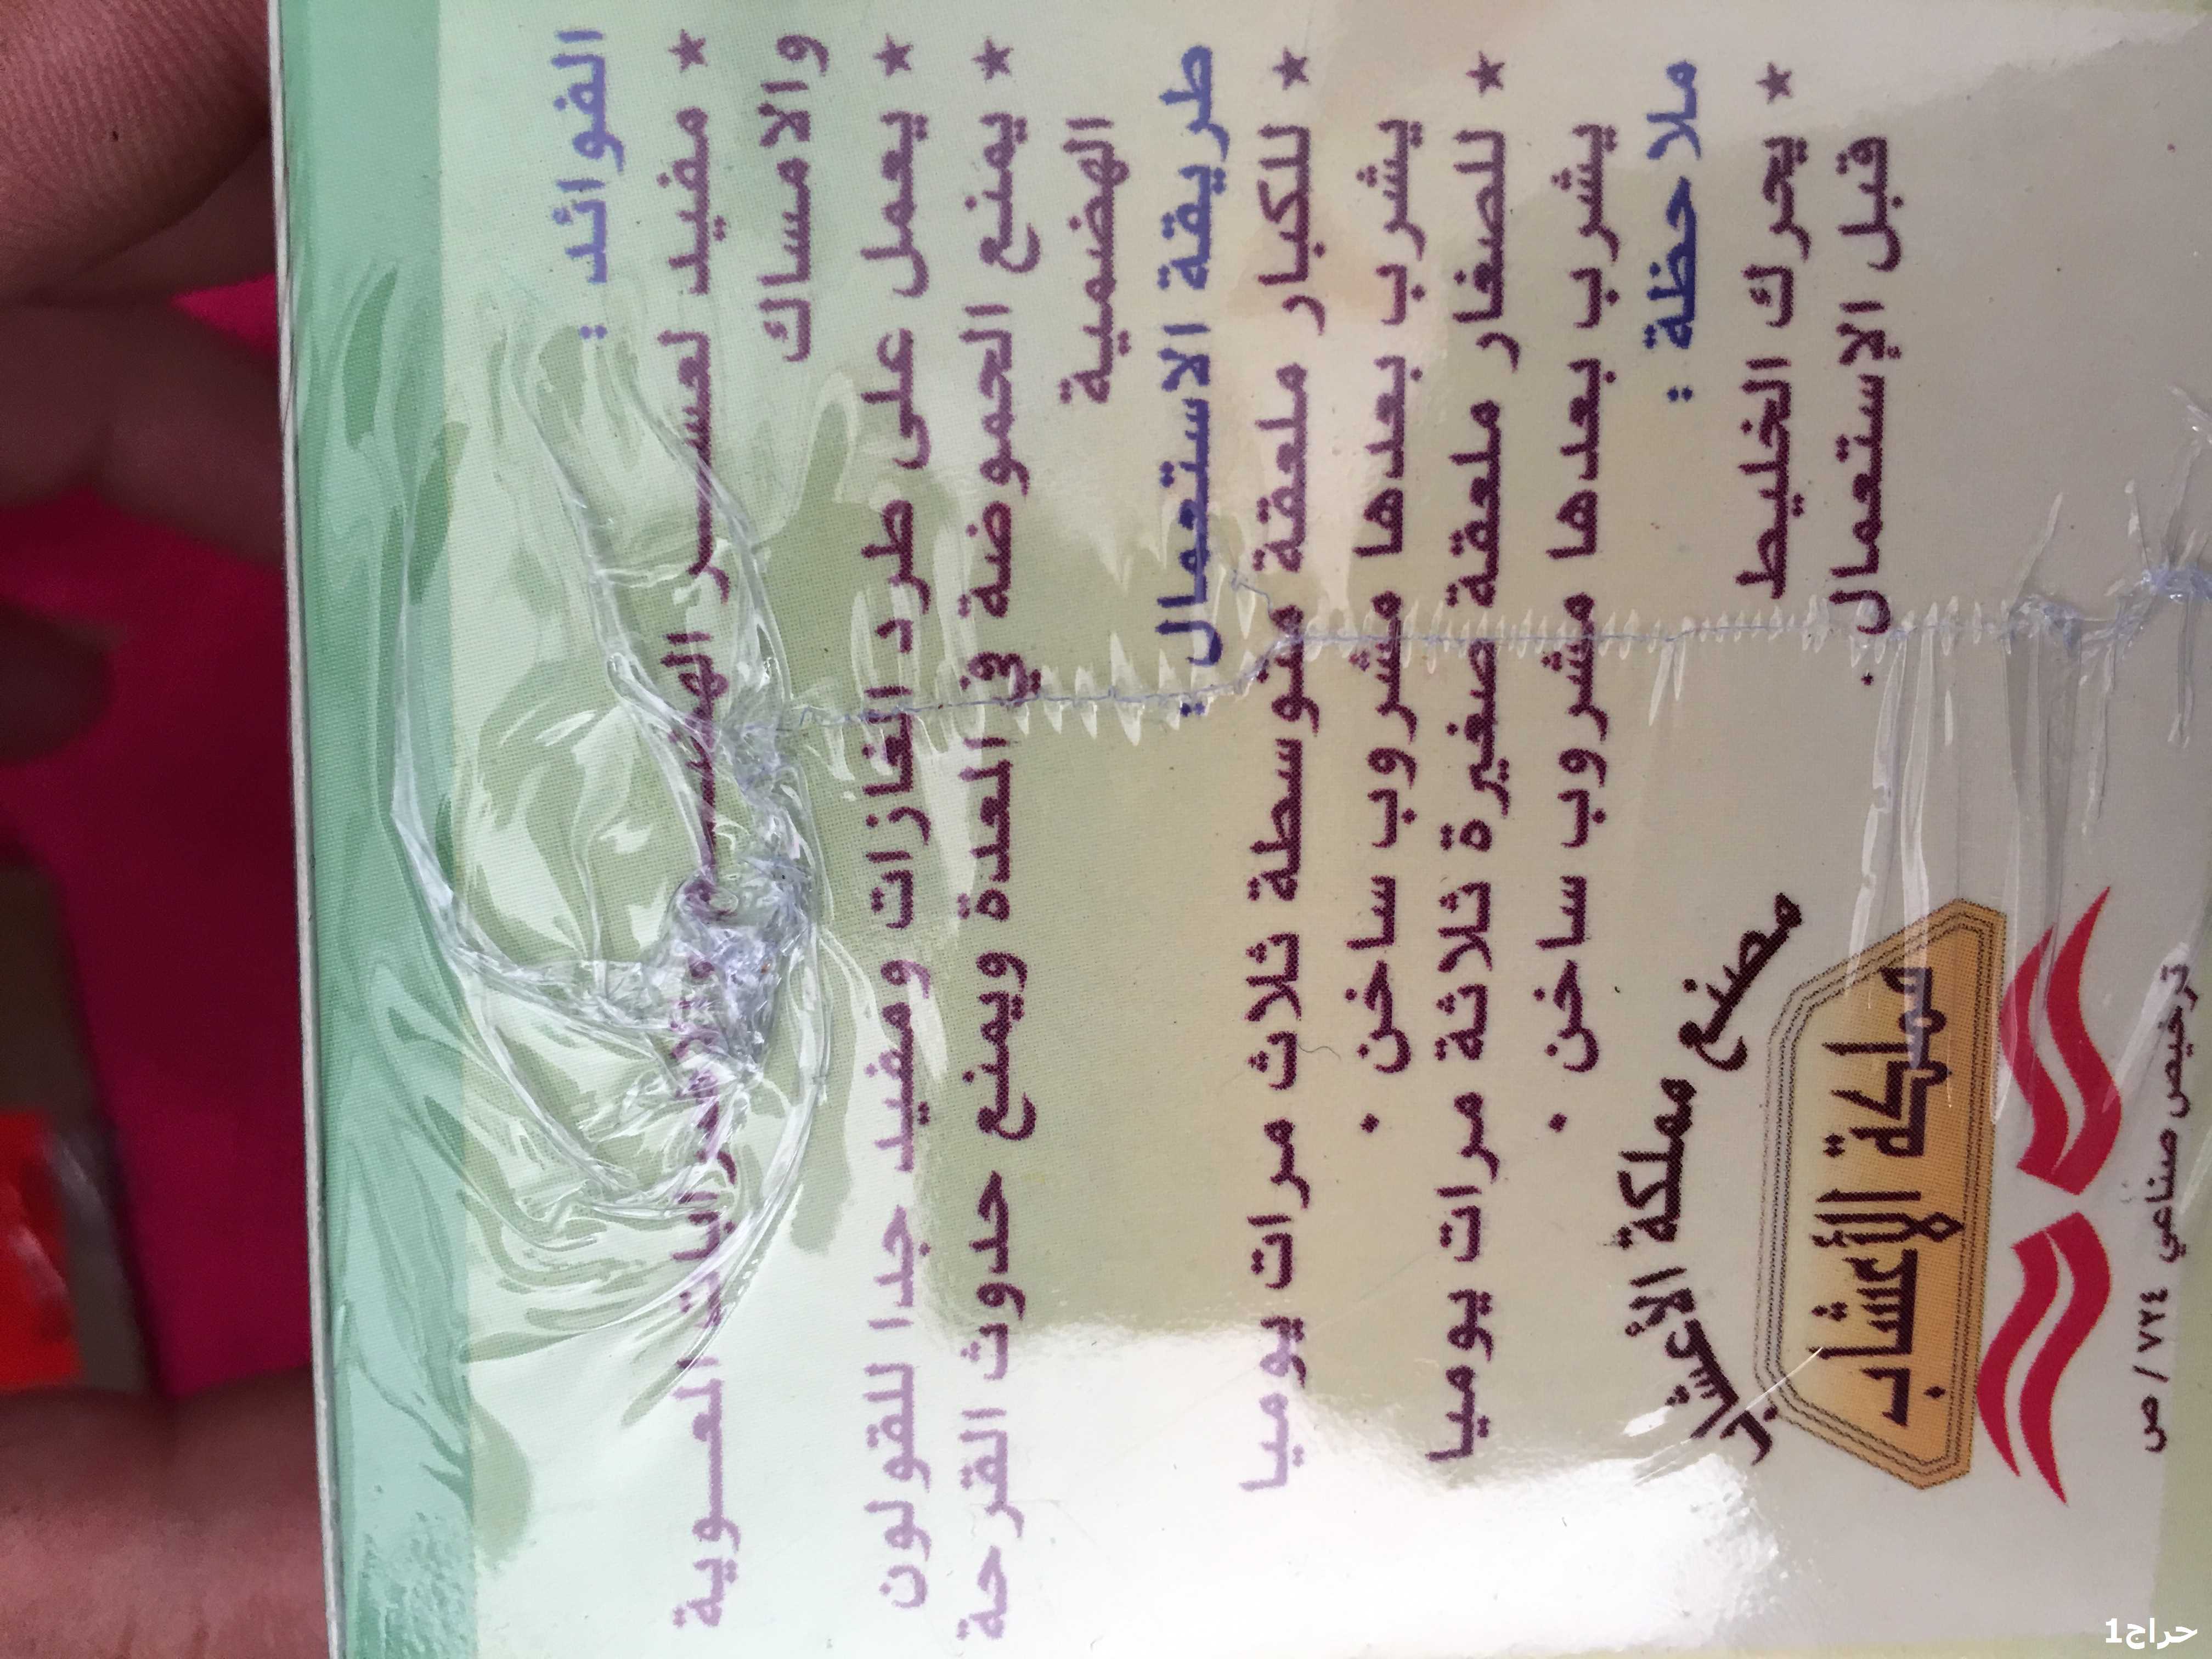 الفوائد :
★ مفيد لعسر الهضم واضطرابات المعوية
والامساك
★ يعمل على طرد الغازات ومفيد جدا للقولون
★ يمنع الحموضة في المعدة ويمنع حدوث القرحة
الهضمية
طريقة الاستعمال :
★ للكبار ملعقة متوسطة ثلاث مرات يوميا
يشرب بعدها مشروب ساخن .
★ للصغار ملعقة صغيرة ثلاثة مرات يوميا
يشرب بعدها مشروب ساخن .
ملاحظة :
★ يحرك الخليط
قبل الإستعمال .
مصنع مملكة الأعشاب
مملكة الأعشاب
ترخيص صناعي ٧٢٤ / ص
حراج1